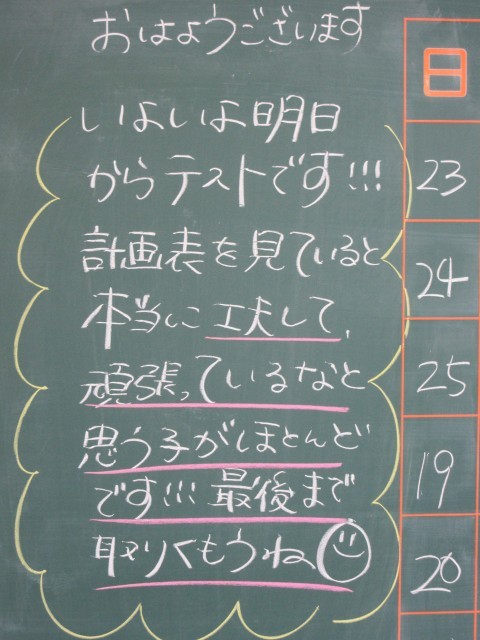 おはようございます
いよいよ明日
からテストです!!!
計画表を見ていると
本当に工夫して、
頑張っているなと
思う子がほとんど
です!!!最後まで
取りくもうね
日
23
24
25
19
20